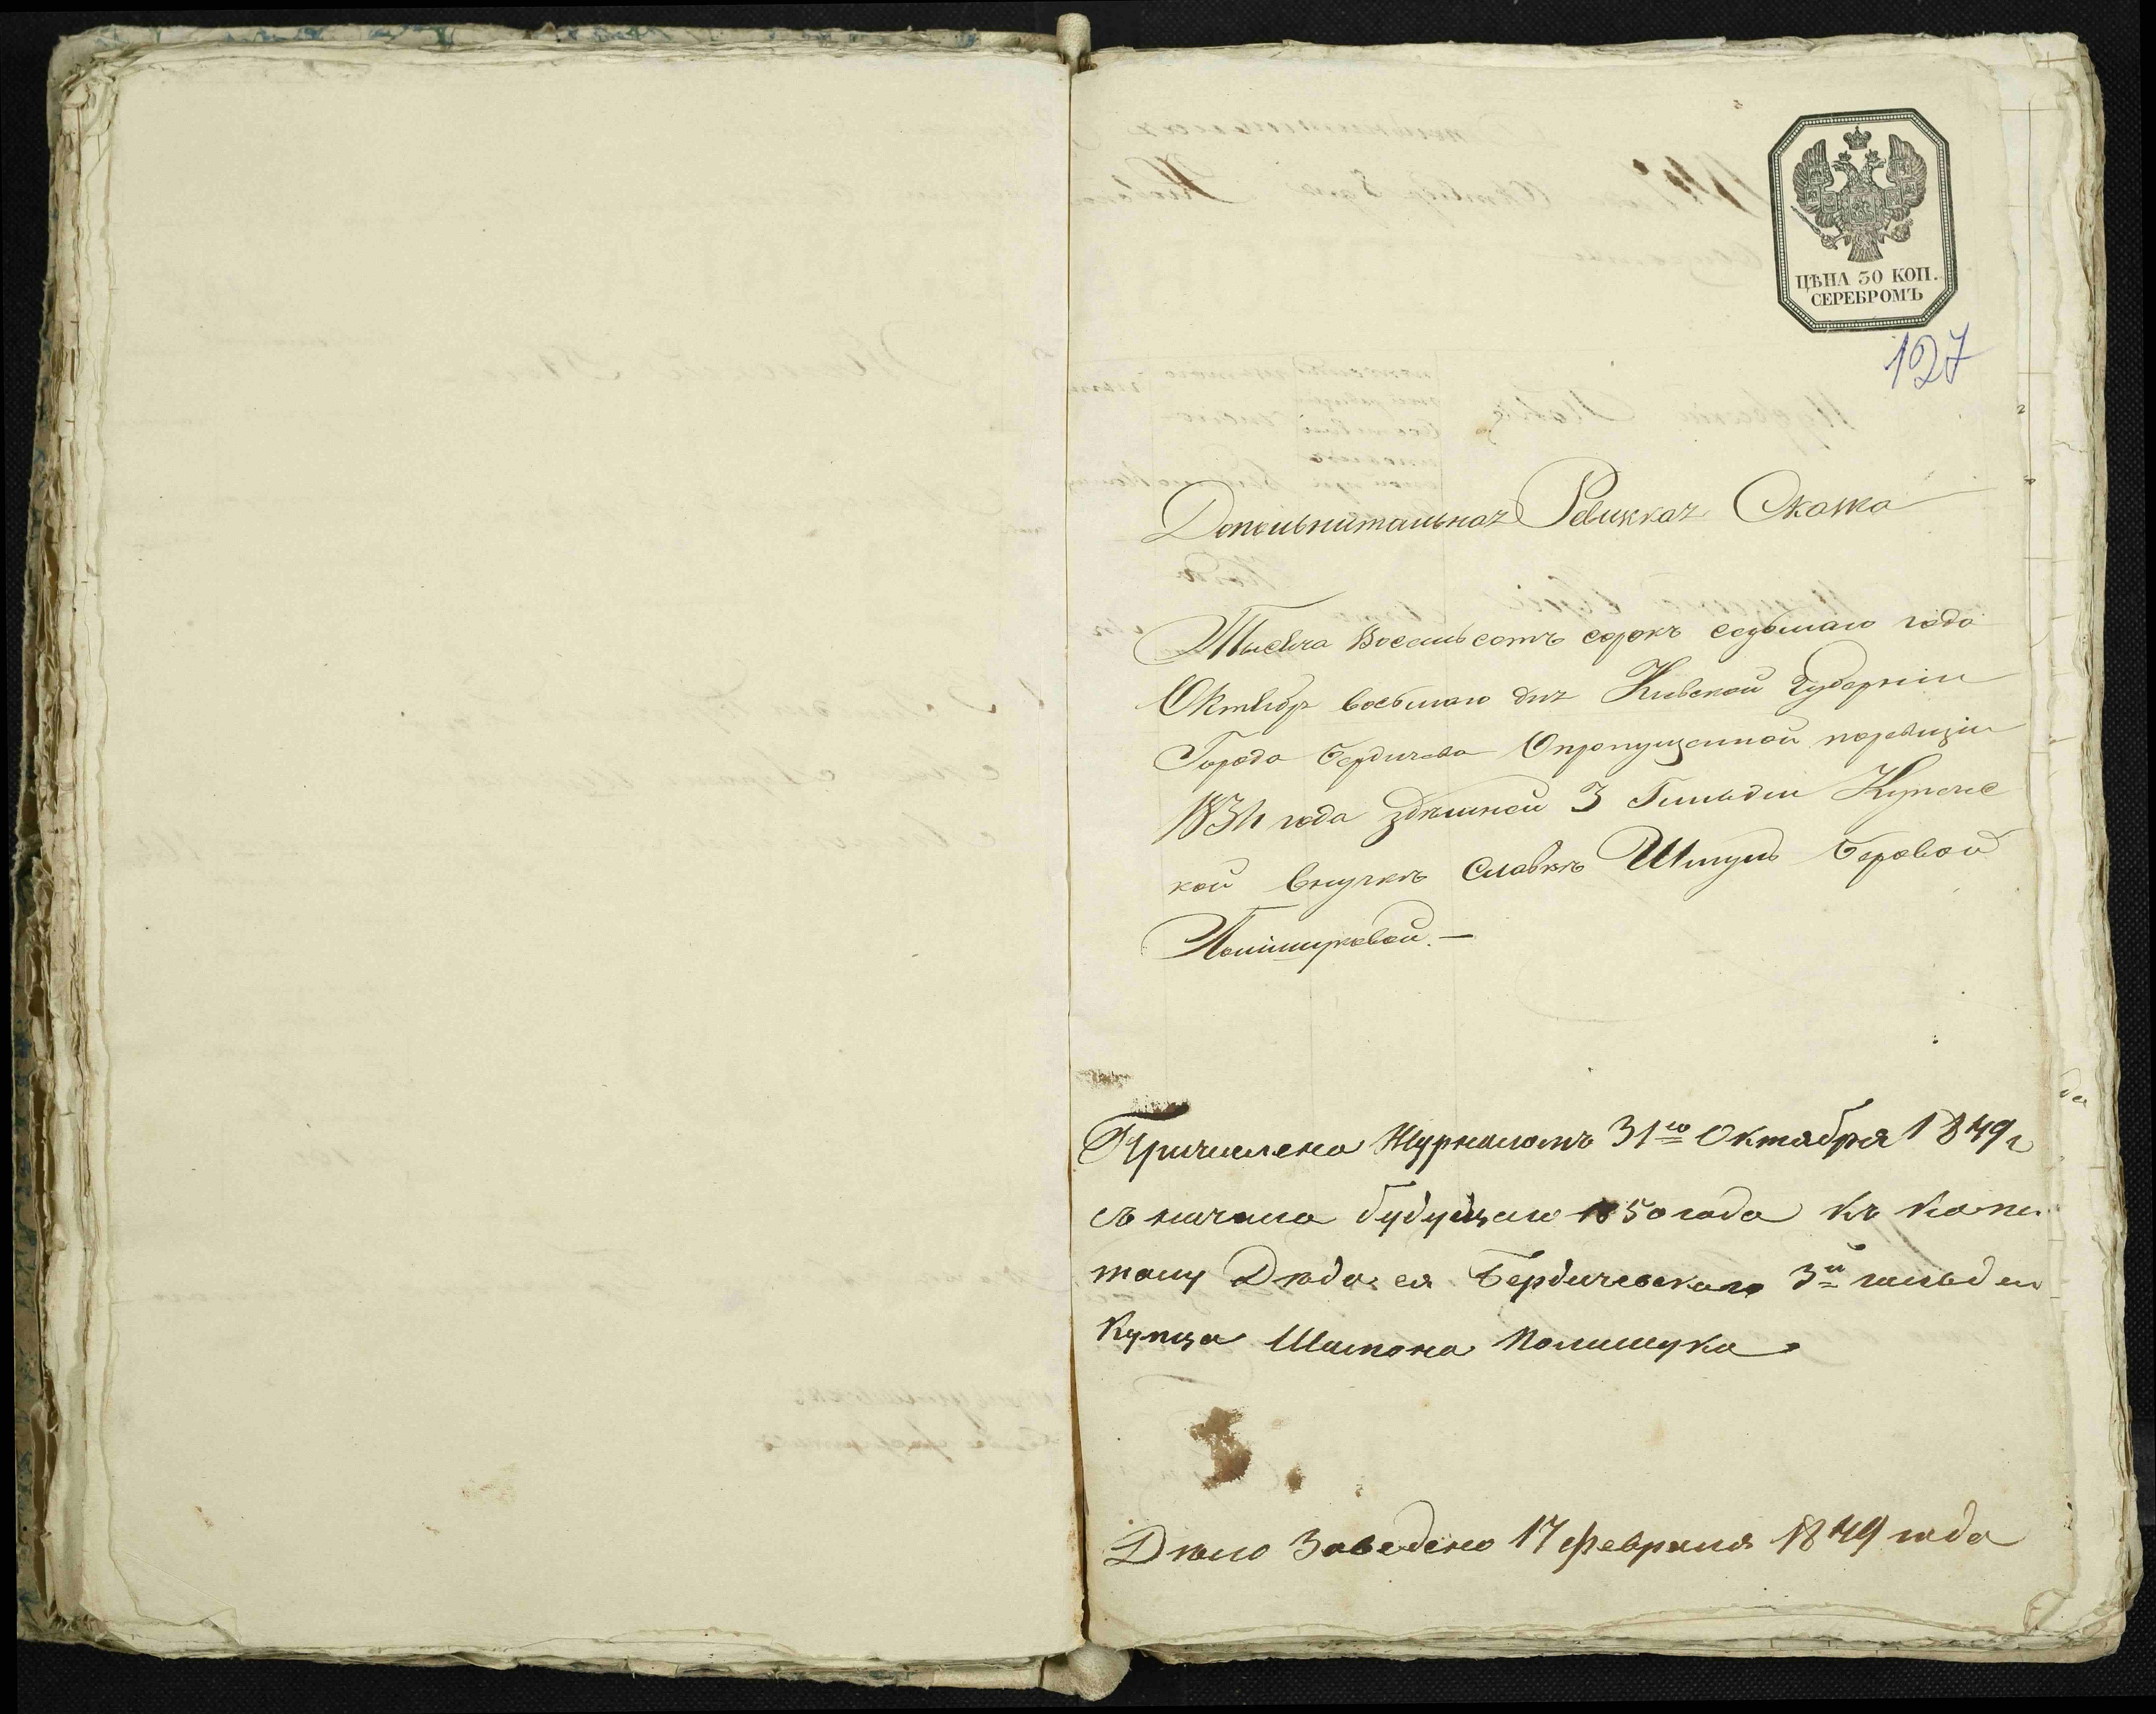 ЦѢНА 30 КОП.
СЕРЕБРОМЪ
127
Дополнительная Ревизкая Скаска
Тысеча Восемьсотъ сорокъ седьмаго года
Октебр восьмаго дня Киевской Губернии
Города Бердичева О пропущенной поревизіи
1834 года здѣшней 3 Гильдии Купечес
кой внучкѣ Славкѣ Шмуль Беровой
Полишуковой. —
Причислена Журналомъ 31го Октября 1849 г
съ начала будущаго 1850 года къ капи
талу Дѣда ея Бердичевскаго 3й гильдии
Купца Шимона Полишука
Дѣло Заведено 17 февраля 1849 года